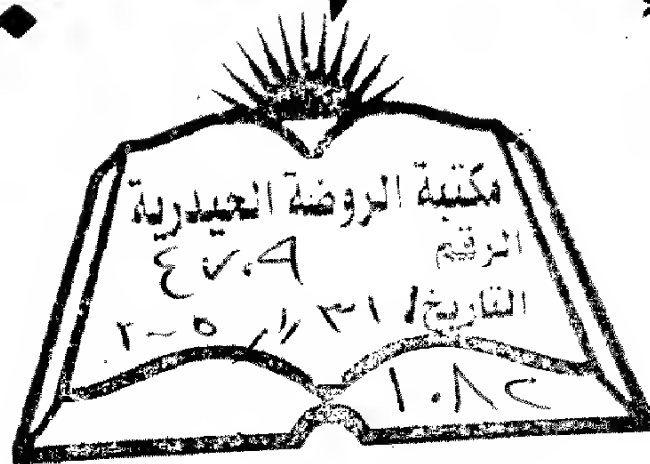 مكتبة الروضة الحيدرية
الرقم ٤٧٠٩
التاريخ ٣١ / ١ / ٢٠٠٥
١٠٨٢